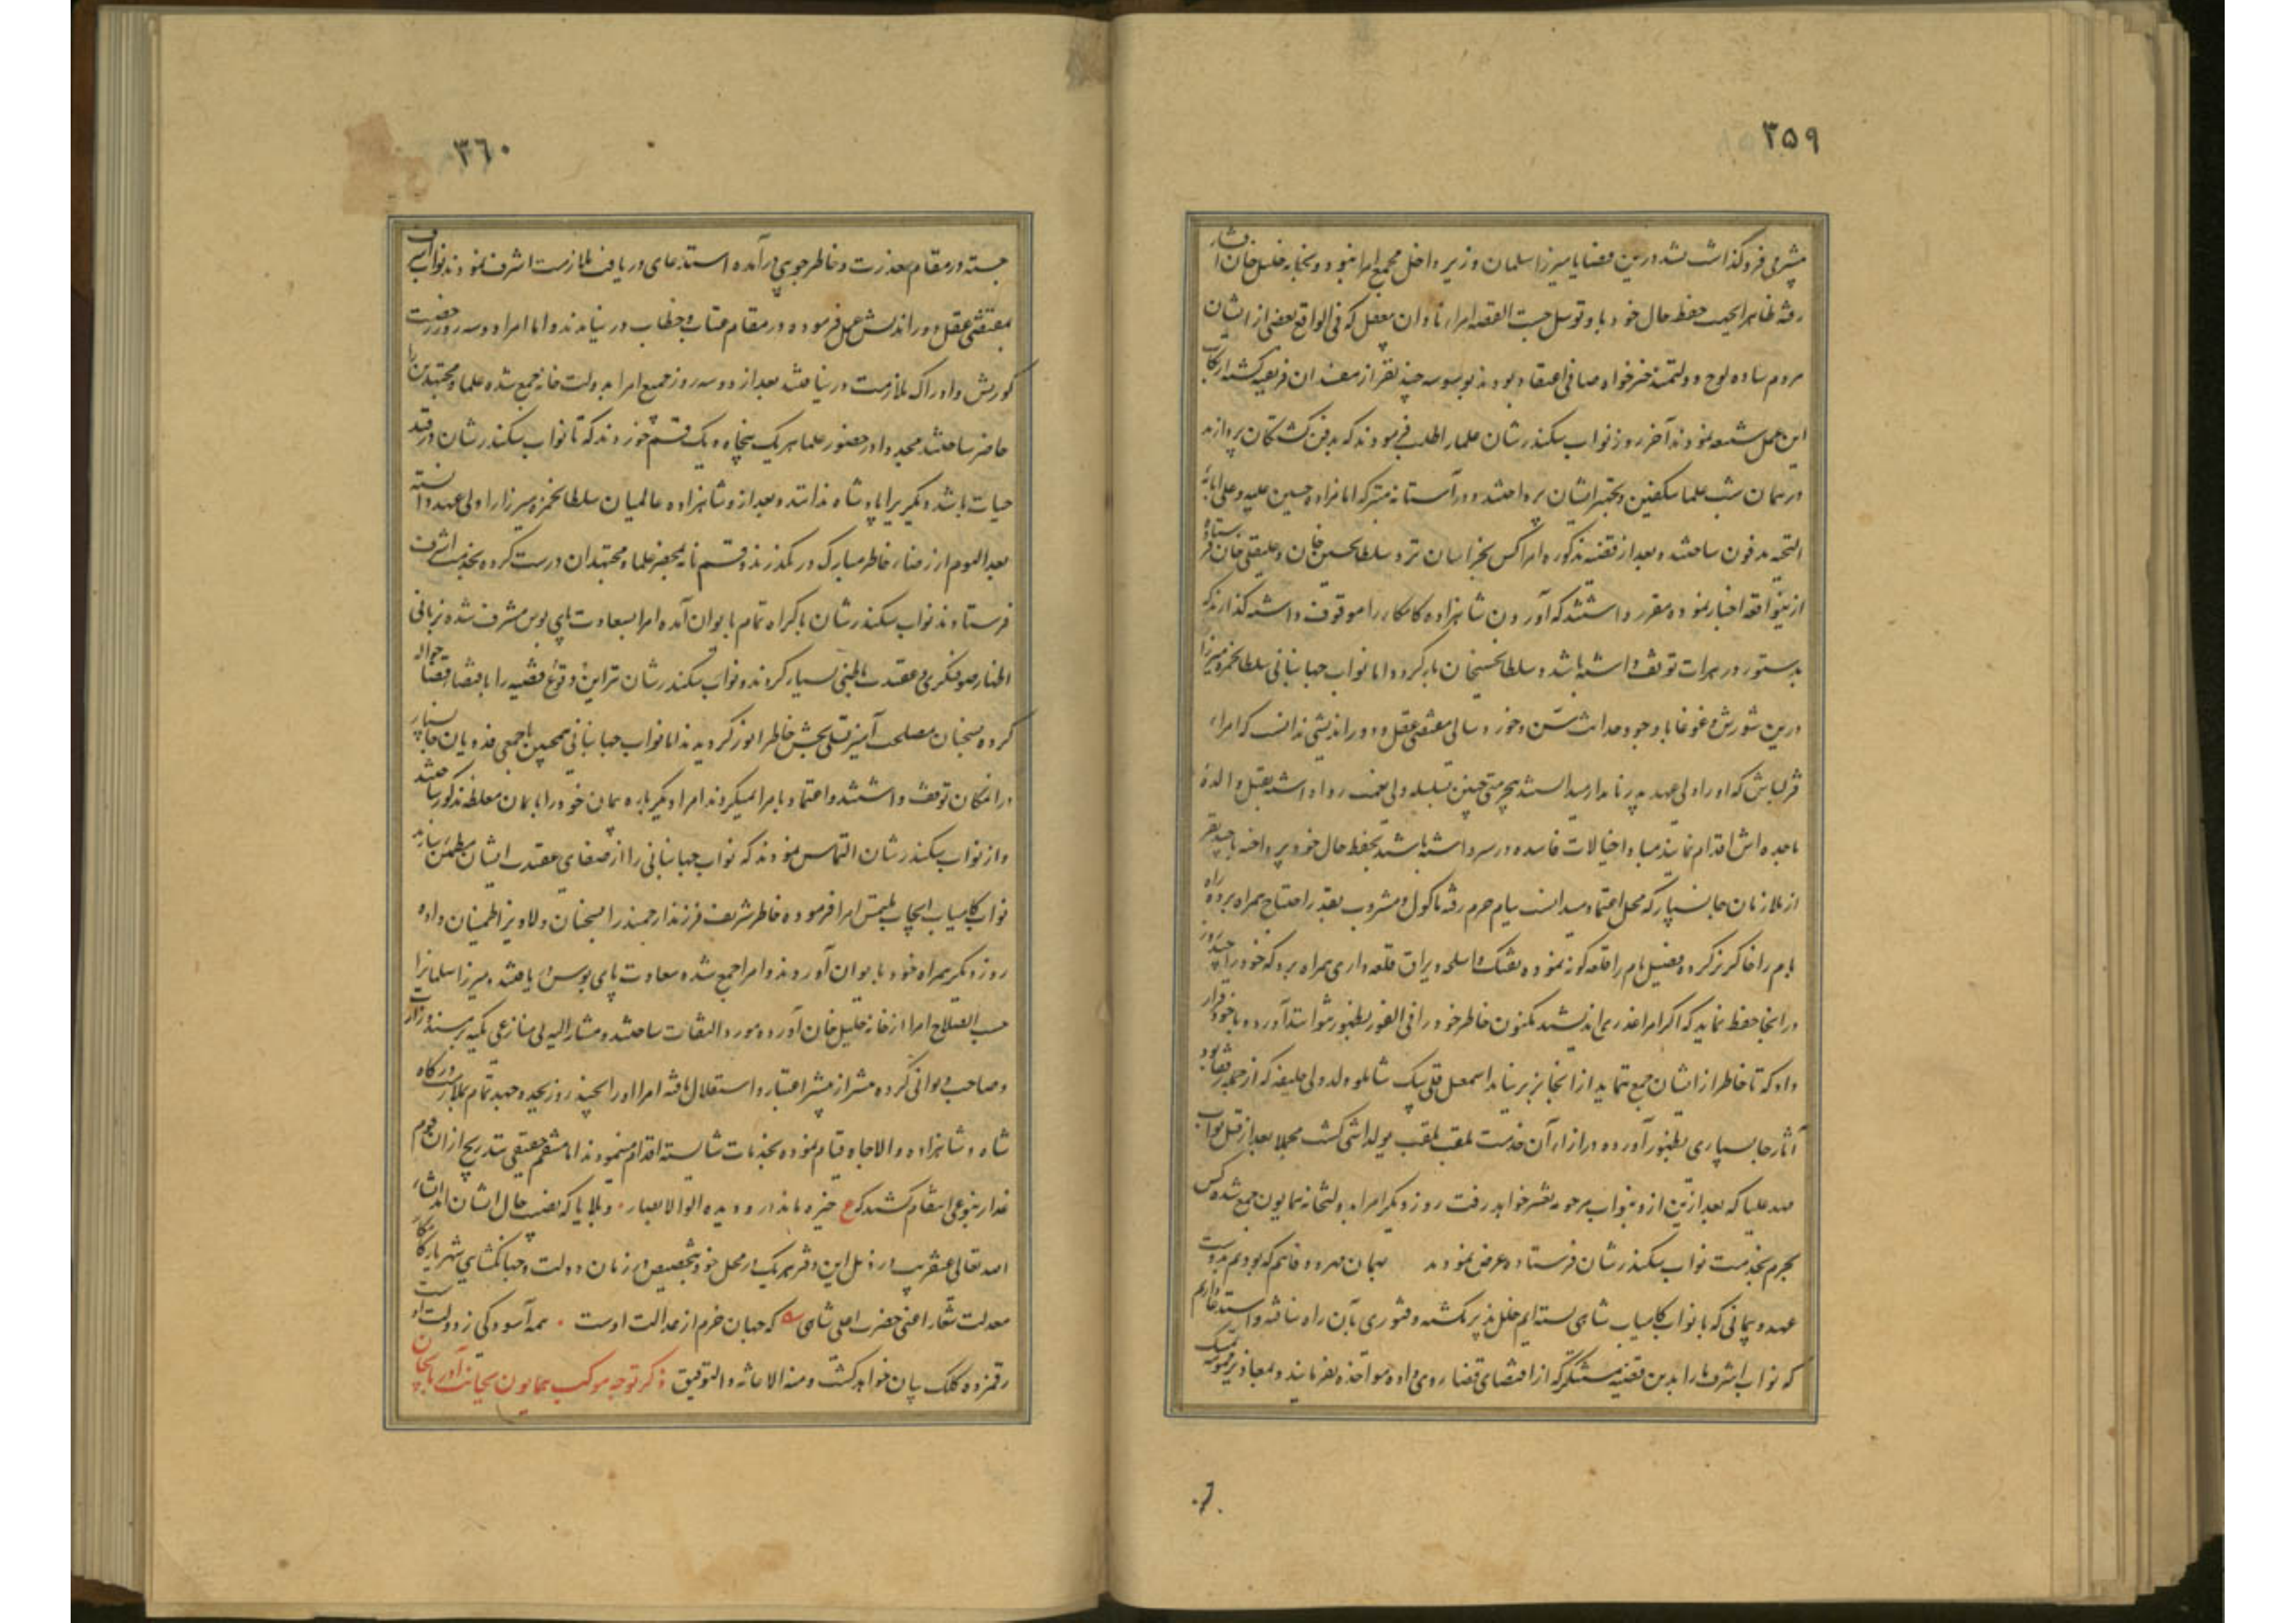 ۳۵۹
مشیری فروگذاشت نشد درین قضایا میرزا سلمان وزیر داخل مجمع امرا نبود و بخانه خلیل خان افشار
رفته ظاهرا بجهت حفظ حال خود باو توسل جست القصه امراء نادان مغفل که فی الواقع بعضی از ایشان
مردم ساده لوح و دولتمند خیرخواه صافی اعتقاد بودند بوسوسه چند نفر از مفسدان فریفته گشته ارتکاب
این عمل شنیعه نمودند آخر روز نواب سکندرشان علما را طلب فرمودند که بدفن کشتگان پردازند
در همان شب علما بتکفین و تجهیز ایشان پرداختند و در آستانه متبرکه امامزاده حسین علیه و علی آبائه
التحیه مدفون ساختند و بعد از قضیه مذکوره امرا کس بخراسان نزد سلطان حسین خان و علیقلی خان فرستاده
ازینواقعه اخبار نموده مقرر داشتند که آوردن شاهزاده کامکار را موقوف داشته گذارند که
بدستور در هرات توقف داشته باشد و سلطان حسینخان بازگردد اما نواب جهانبانی سلطان حمزه میرزا
درین شورش و غوغا با وجود حداثت سن و خورد سالی بمقتضی عقل و دوراندیشی ندانست که امراء
قزلباش که او را ولی عهد پدر نامدار میدانستند بیحرمتی چنین بسلسله ولی نعمت روا داشته بقتل والدهٔ
ماجده اش اقدام نمایند مبادا خیالات فاسده در سر داشته باشند بحفظ حال خود پرداخته با چند نفر
از ملازمان جانسپار که محل اعتماد میدانست ببام حرم رفته ماکول و مشروب بقدر احتیاج همراه برده راه
بام را خاکریز کرده و فصیل بام را قلعه گونه نموده تفنگ و اسلحه و یراق قلعه داری همراه برد که خود را چند روز
در انجا حفظ نماید که اگر امرا غدری اندیشند مکنون خاطر خود را فی الفور بظهور نتوانند آورد و با خود قرار
داد که تا خاطر از ایشان جمع ننماید از انجا بزیر نیاید اسمعیل قلی بیک شاملو ولد ولی خلیفه که از جمله رفقا بود
آثار جانسپاری بظهور آورده در ازاء آن خدمت بلقب یولداشی گشت مجملا بعد از قتل نواب
مهد علیا که بعد ازین ازو بنواب مرحومه تعبیر خواهد رفت روز دیگر امرا بدولتخانه همایون جمع شده کس
بحرم بخدمت نواب سکندرشان فرستاده عرض نمودند همان مهر و وفائیم که بودیم بدوست
عهد و پیمانی که با نواب کامیاب شاهی بسته ایم خلل پذیر نگشته و فتوری بآن راه نیافته و استدعا داریم
که نواب اشرف ما را بدین قضیه مستنکر که از اقتضای قضا روی داده مواخذه نفرمایند و بمعاذیر تمسک
۳۶۰
جسته در مقام معذرت و خاطر جویی درآمده استدعای دریافت ملازمت اشرف نمودند نواب اشرف
بمقتضی عقل دوراندیش عمل فرموده در مقام عتاب و خطاب در نیامدند و اما امرا دو سه روز رخصت
کورنش و ادراک ملازمت در نیافتند بعد از دو سه روز جمیع امرا بدولت خانه جمع شده علما و مجتهدین را
حاضر ساختند مجددا در حضور علما هر یک پنجاه و یک قسم خوردند که تا نواب سکندرشان در قید
حیات باشد دیگری را پادشاه ندانند و بعد ازو شاهزاده عالمیان سلطان حمزه میرزا را ولی عهد دانسته
بعد الیوم از رضاء خاطر مبارک در نگذرند و قسم نامه بمحضر علما و مجتهدان درست کرده بخدمت اشرف
فرستادند نواب سکندرشان باکراه تمام بایوان آمده امرا بسعادت پای بوس مشرف شده زبانی
اظهار صوفیگری و عقیدت باطنی بسیار کردند و نواب سکندرشان نیز این وقوع قضیه را باقتضاء قضا حواله
کرده بسخنان مصلحت آمیز تسلی بخش خاطر انور گردیدند اما نواب جهانبانی همچنین با جمعی فدویان جانسپار
در انمکان توقف داشتند و اعتماد بامرا نمیکردند امرا دیگرباره پیمان خود را بایمان مغلظه مذکور ساختند
و از نواب سکندرشان التماس نمودند که نواب جهانبانی را از صفای عقیدت ایشان مطمئن سازند
نواب کامیاب ایجاب ملتمس امرا فرموده خاطر شریف فرزند ارجمند را بسخنان دلاویز اطمینان داده
روز دیگر همراه خود بایوان آوردند و امرا جمع شده سعادت پای بوس یافتند و میرزا سلمانرا
حسب الصلاح امرا از خانه خلیل خان آورده مورد التفات ساختند و مشار الیه بی منازعی تکیه بر مسند وزارت
و صاحب دیوانی کرده بیشتر از پیشتر اعتبار و استقلال یافته امرا اورا چند روز بجد و جهد تمام بملازمت درگاه
شاه و شاهزاده والاجاه قیام نموده بخدمات شایسته اقدام مینمودند اما منتقم حقیقی بتدریج از ان قوم
غدار بنوعی انتقام کشید که ع خیره ماند از و دیده اولوا الابصار ۰ و بلایا که نصیب حال ایشان شد انشاء
الله تعالی عنقریب در ذیل این دفتر هر یک در محل خود بتخصیص در زمان دولت و جهانگشایی شهریار کامکار
معدلت شعار اعنی حضرت اعلی شاهی که جهان خرم از عدالت اوست ۰ همه آسودگی ز دولت اوست
رقمزده کلک بیان خواهد گشت و منه الاعانه و التوفیق ذکر توجه موکب همایون بجانب آذربایجان